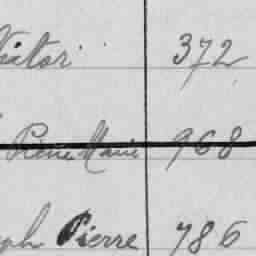 Victor 372
Pierre Marie 968
ph Pierre 786